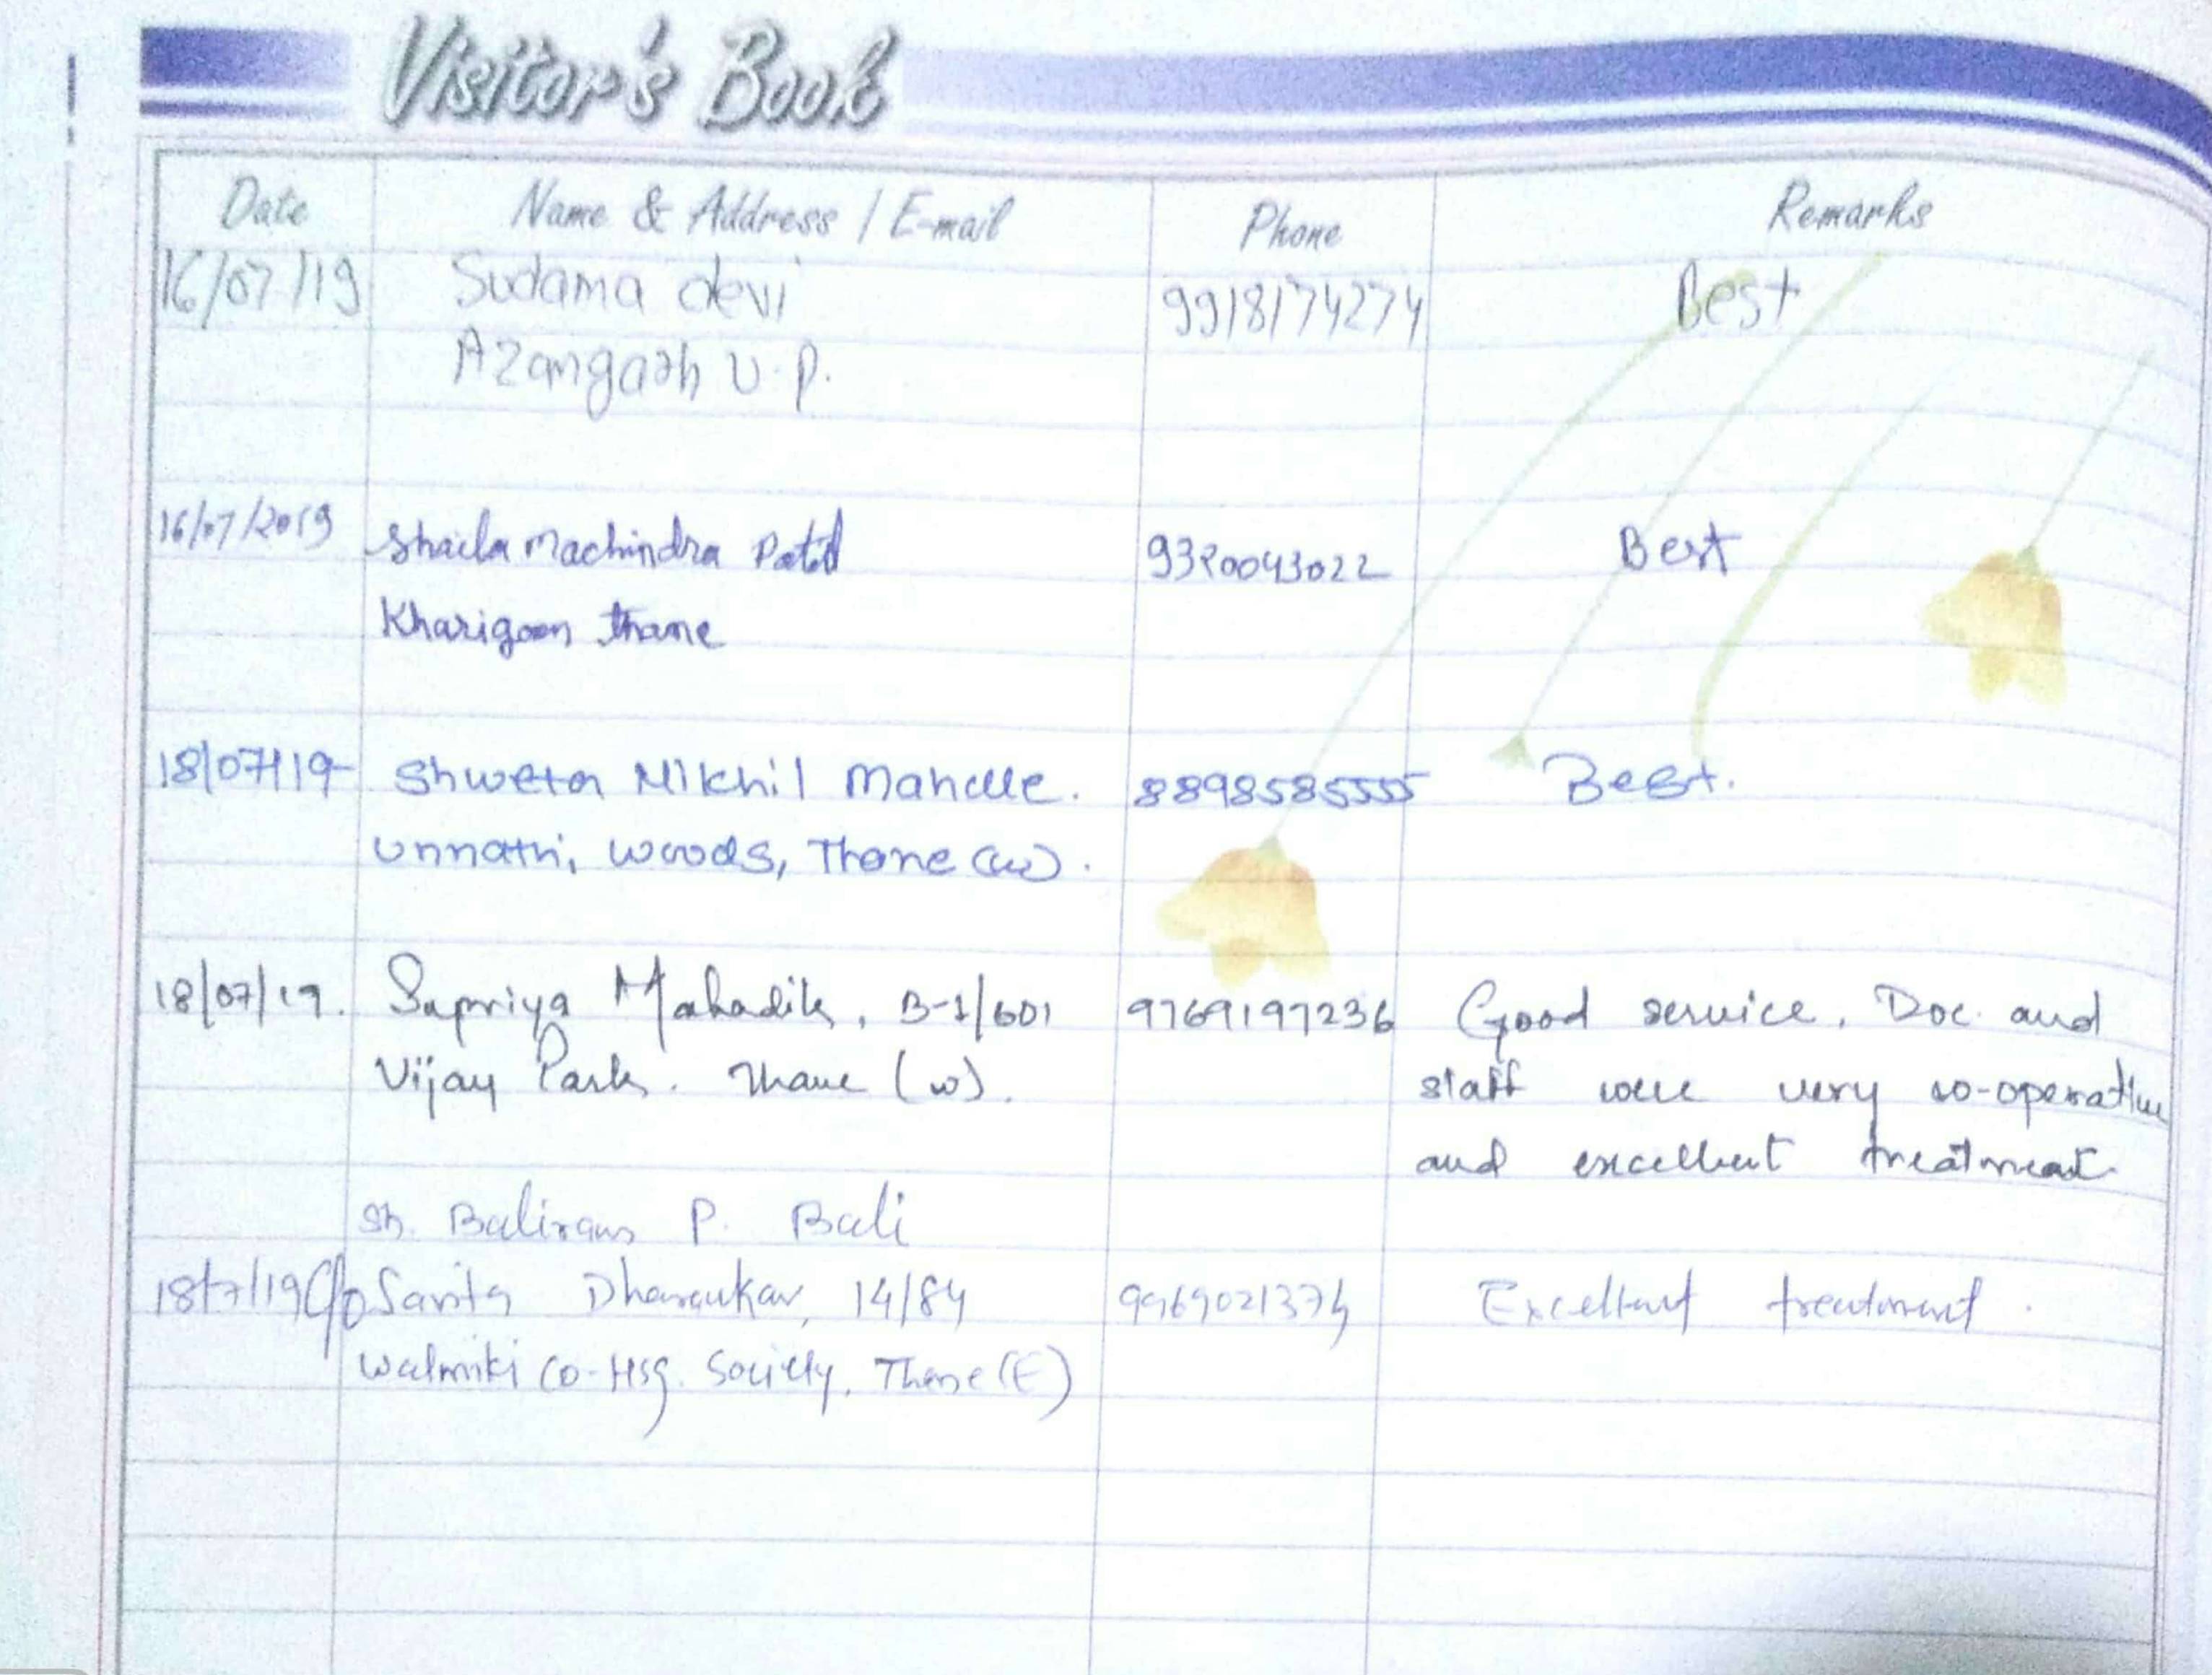 Visitor's Book
Date Name & Address / E-mail Phone Remarks
16/07/19 Sudama devi 9918174274 Best
Azamgarh U.P.
16/07/2019 Shaila Machindra Patil 9320043022 Best
Kharigaon thane
18/07/19 Shweta Nikhil Mahalle. 8898585555 Best.
Unnathi, woods, Thane (w).
18/07/19. Supriya Mahadik, B-1/601 9769197236 Good service, Doc. and
Vijay Park. Thane (w). staff were very co-operative
and excellent treatment
Sh. Baliram P. Bali
18/7/19 C/o Savita 14/84 9969021374 Excellent treatment.
Walmiki Co-Hsg. Society, Thane (E)